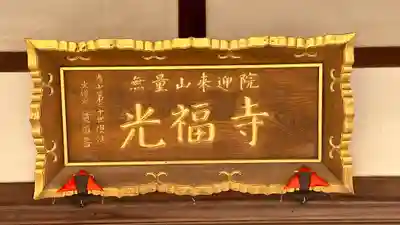 無量山来迎院
光福寺